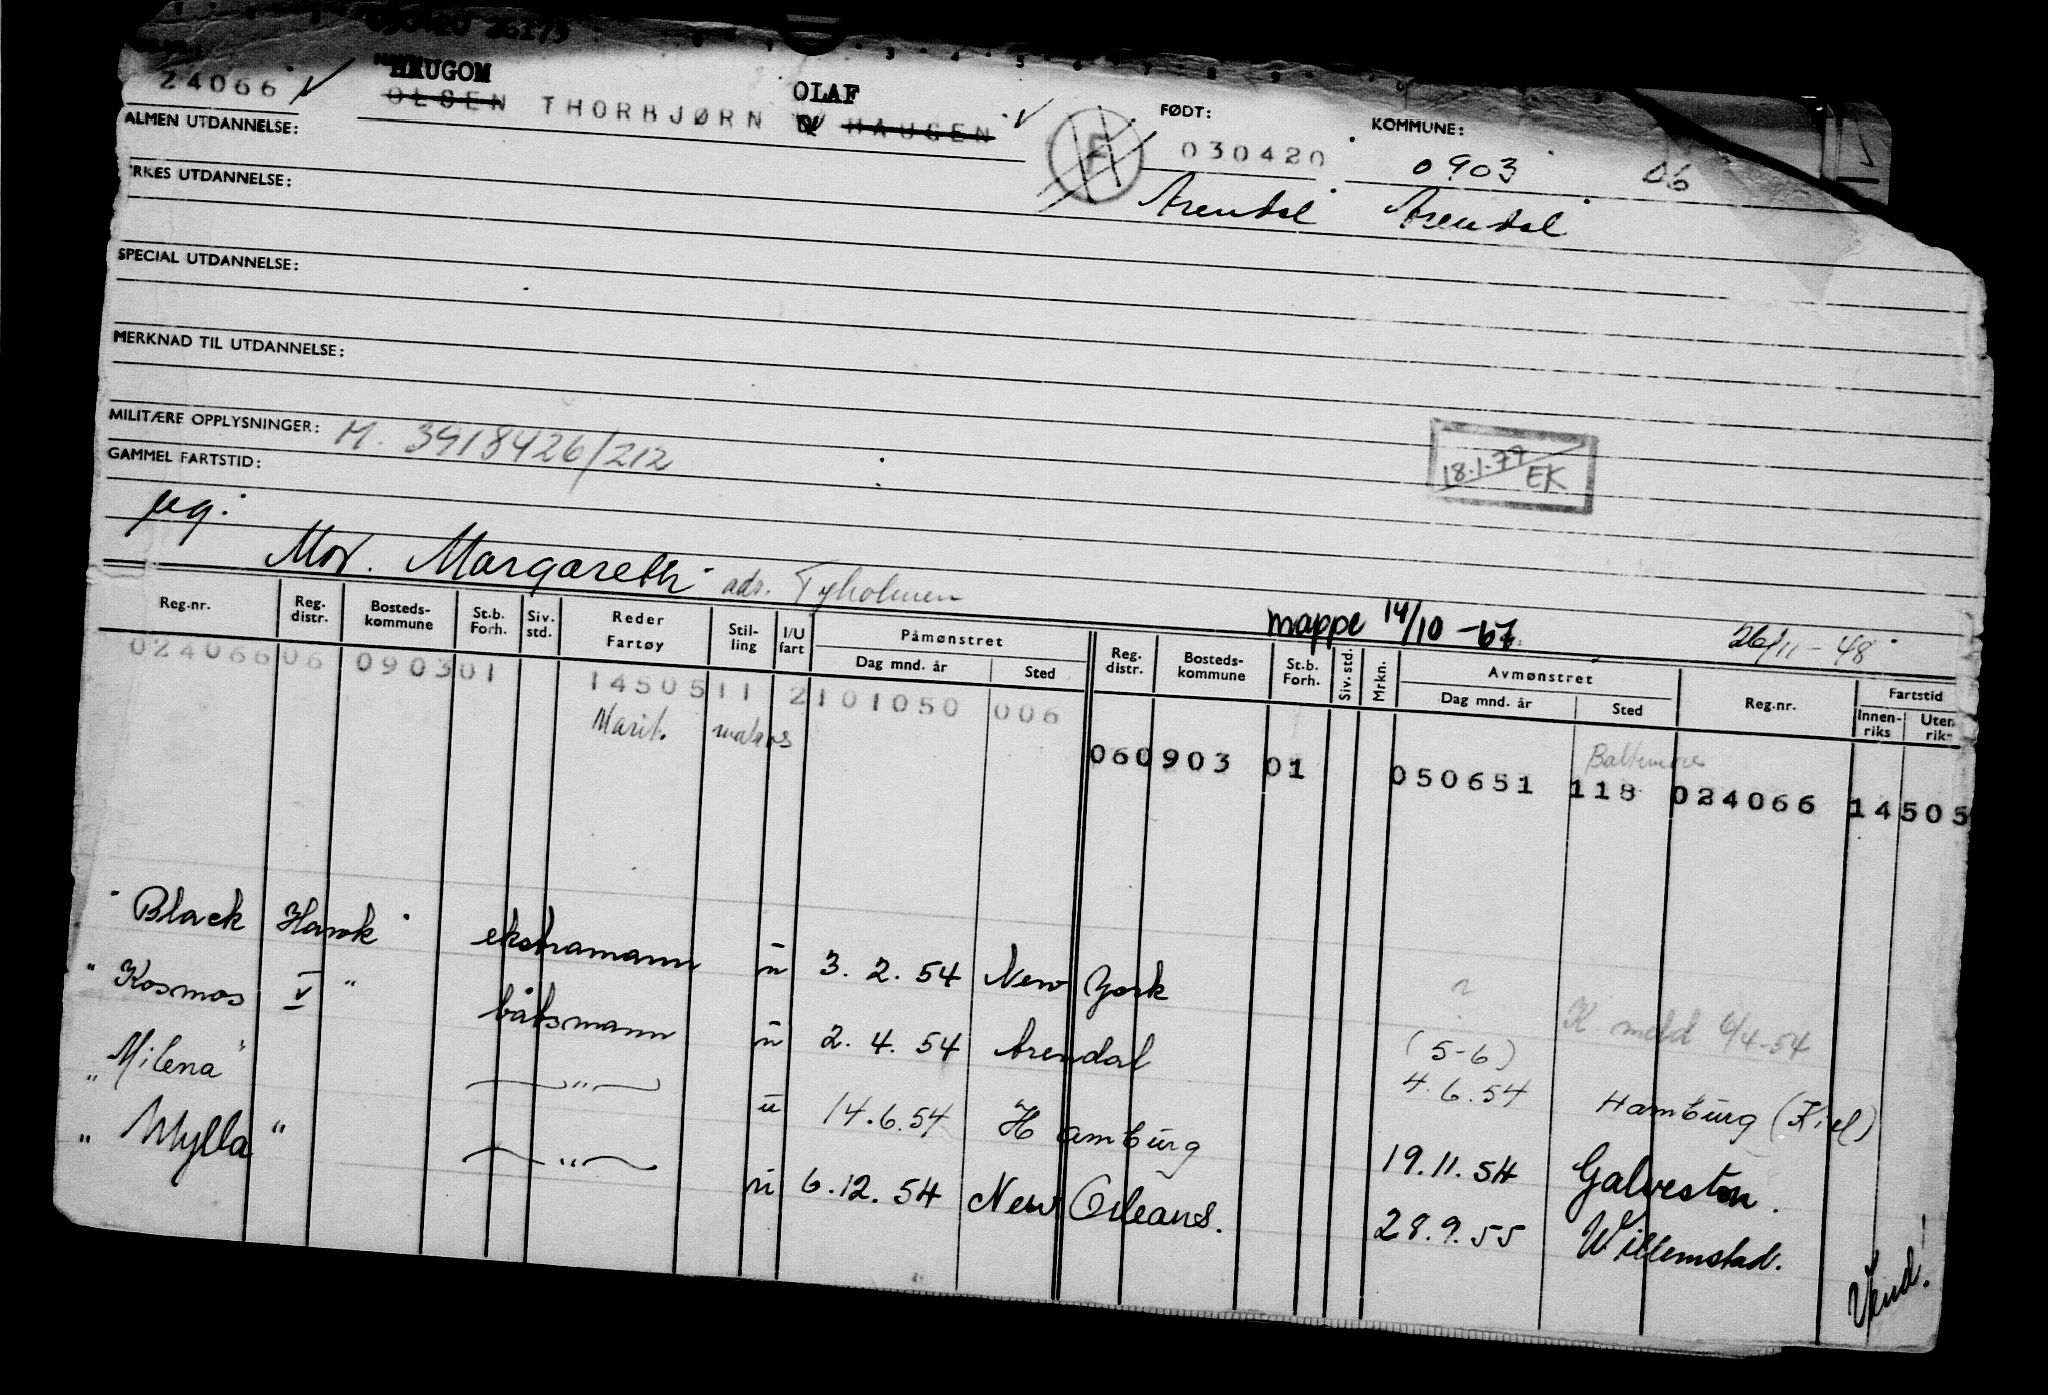 030420 26175
HAUGOM OLAF
24066 OLSEN THORBJØRN HAUGEN
FØDT: KOMMUNE:
030420 0903 06
Arendal Arendal
ALMEN UTDANNELSE:
YRKES UTDANNELSE:
SPECIAL UTDANNELSE:
MERKNAD TIL UTDANNELSE:
MILITÆRE OPPLYSNINGER: M. 3918426/212
18.1.77 EK
GAMMEL FARTSTID:
ug.
Mor. Margareth adr. Tyholmen
mappe 14/10-67. 26/11-48
Reg.nr. Reg. distr. Bosteds-kommune St.b. Forh. Siv. std. Reder Fartøy Stil-ling I/U fart Påmønstret Dag mnd. år Sted Reg. distr. Bosteds-kommune St.b. Forh. Siv. std. Mrkn. Avmønstret Dag mnd. år Sted Reg.nr. Fartstid Innen-riks Uten riks
024066 06 0903 01 14505 11 2 101050 006
Marit. matros
Baltimore
06 0903 01 050651 118 024066 14505
"Black Hawk" ekstramann u 3.2.54 New York ? K. meld 6/4-54
"Kosmos V" båtsmann u 2.4.54 Arendal (5-6) 4.6.54 Hamburg (Kiel)
"Milena" —"— u 14.6.54 Hamburg 19.11.54 Galveston.
"Mylla" —"— u 6.12.54 New Orleans. 28.9.55 Willemstad.
Vend.